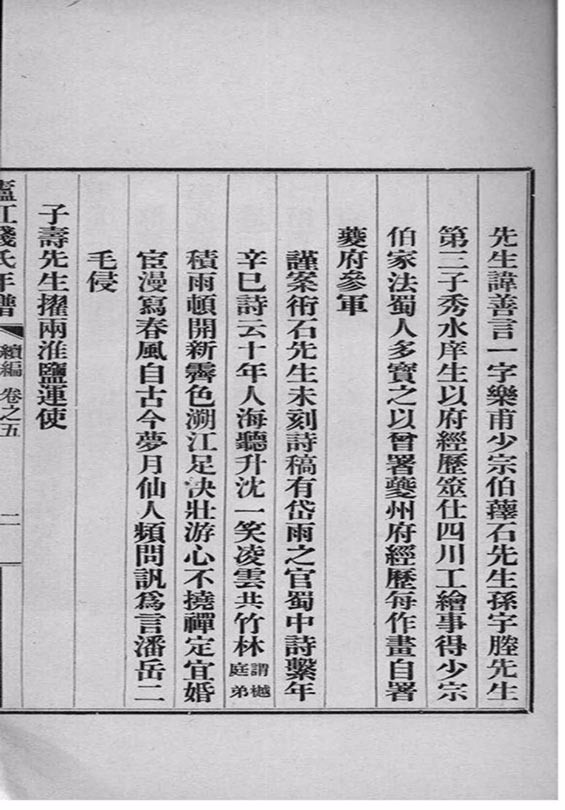 先生諱善言一字樂甫少宗伯蘀石先生孫字塍先生
第三子秀水庠生以府經歷筮仕四川工繪事得少宗
伯家法蜀人多寶之以曾署夔州府經歷每作畫自署
夔府參軍
謹案術石先生未刻詩稿有岱雨之官蜀中詩繫年
辛巳詩云十年人海聽升沈一笑凌雲共竹林謂樾庭弟
積雨頓開新霽色溯江足訣壯游心不撓禪定宜婚
宦漫寫春風自古今夢月仙人頻問訊爲言潘岳二
毛侵
子壽先生擢兩淮鹽運使
廬江錢氏年譜 續編 卷之五 二